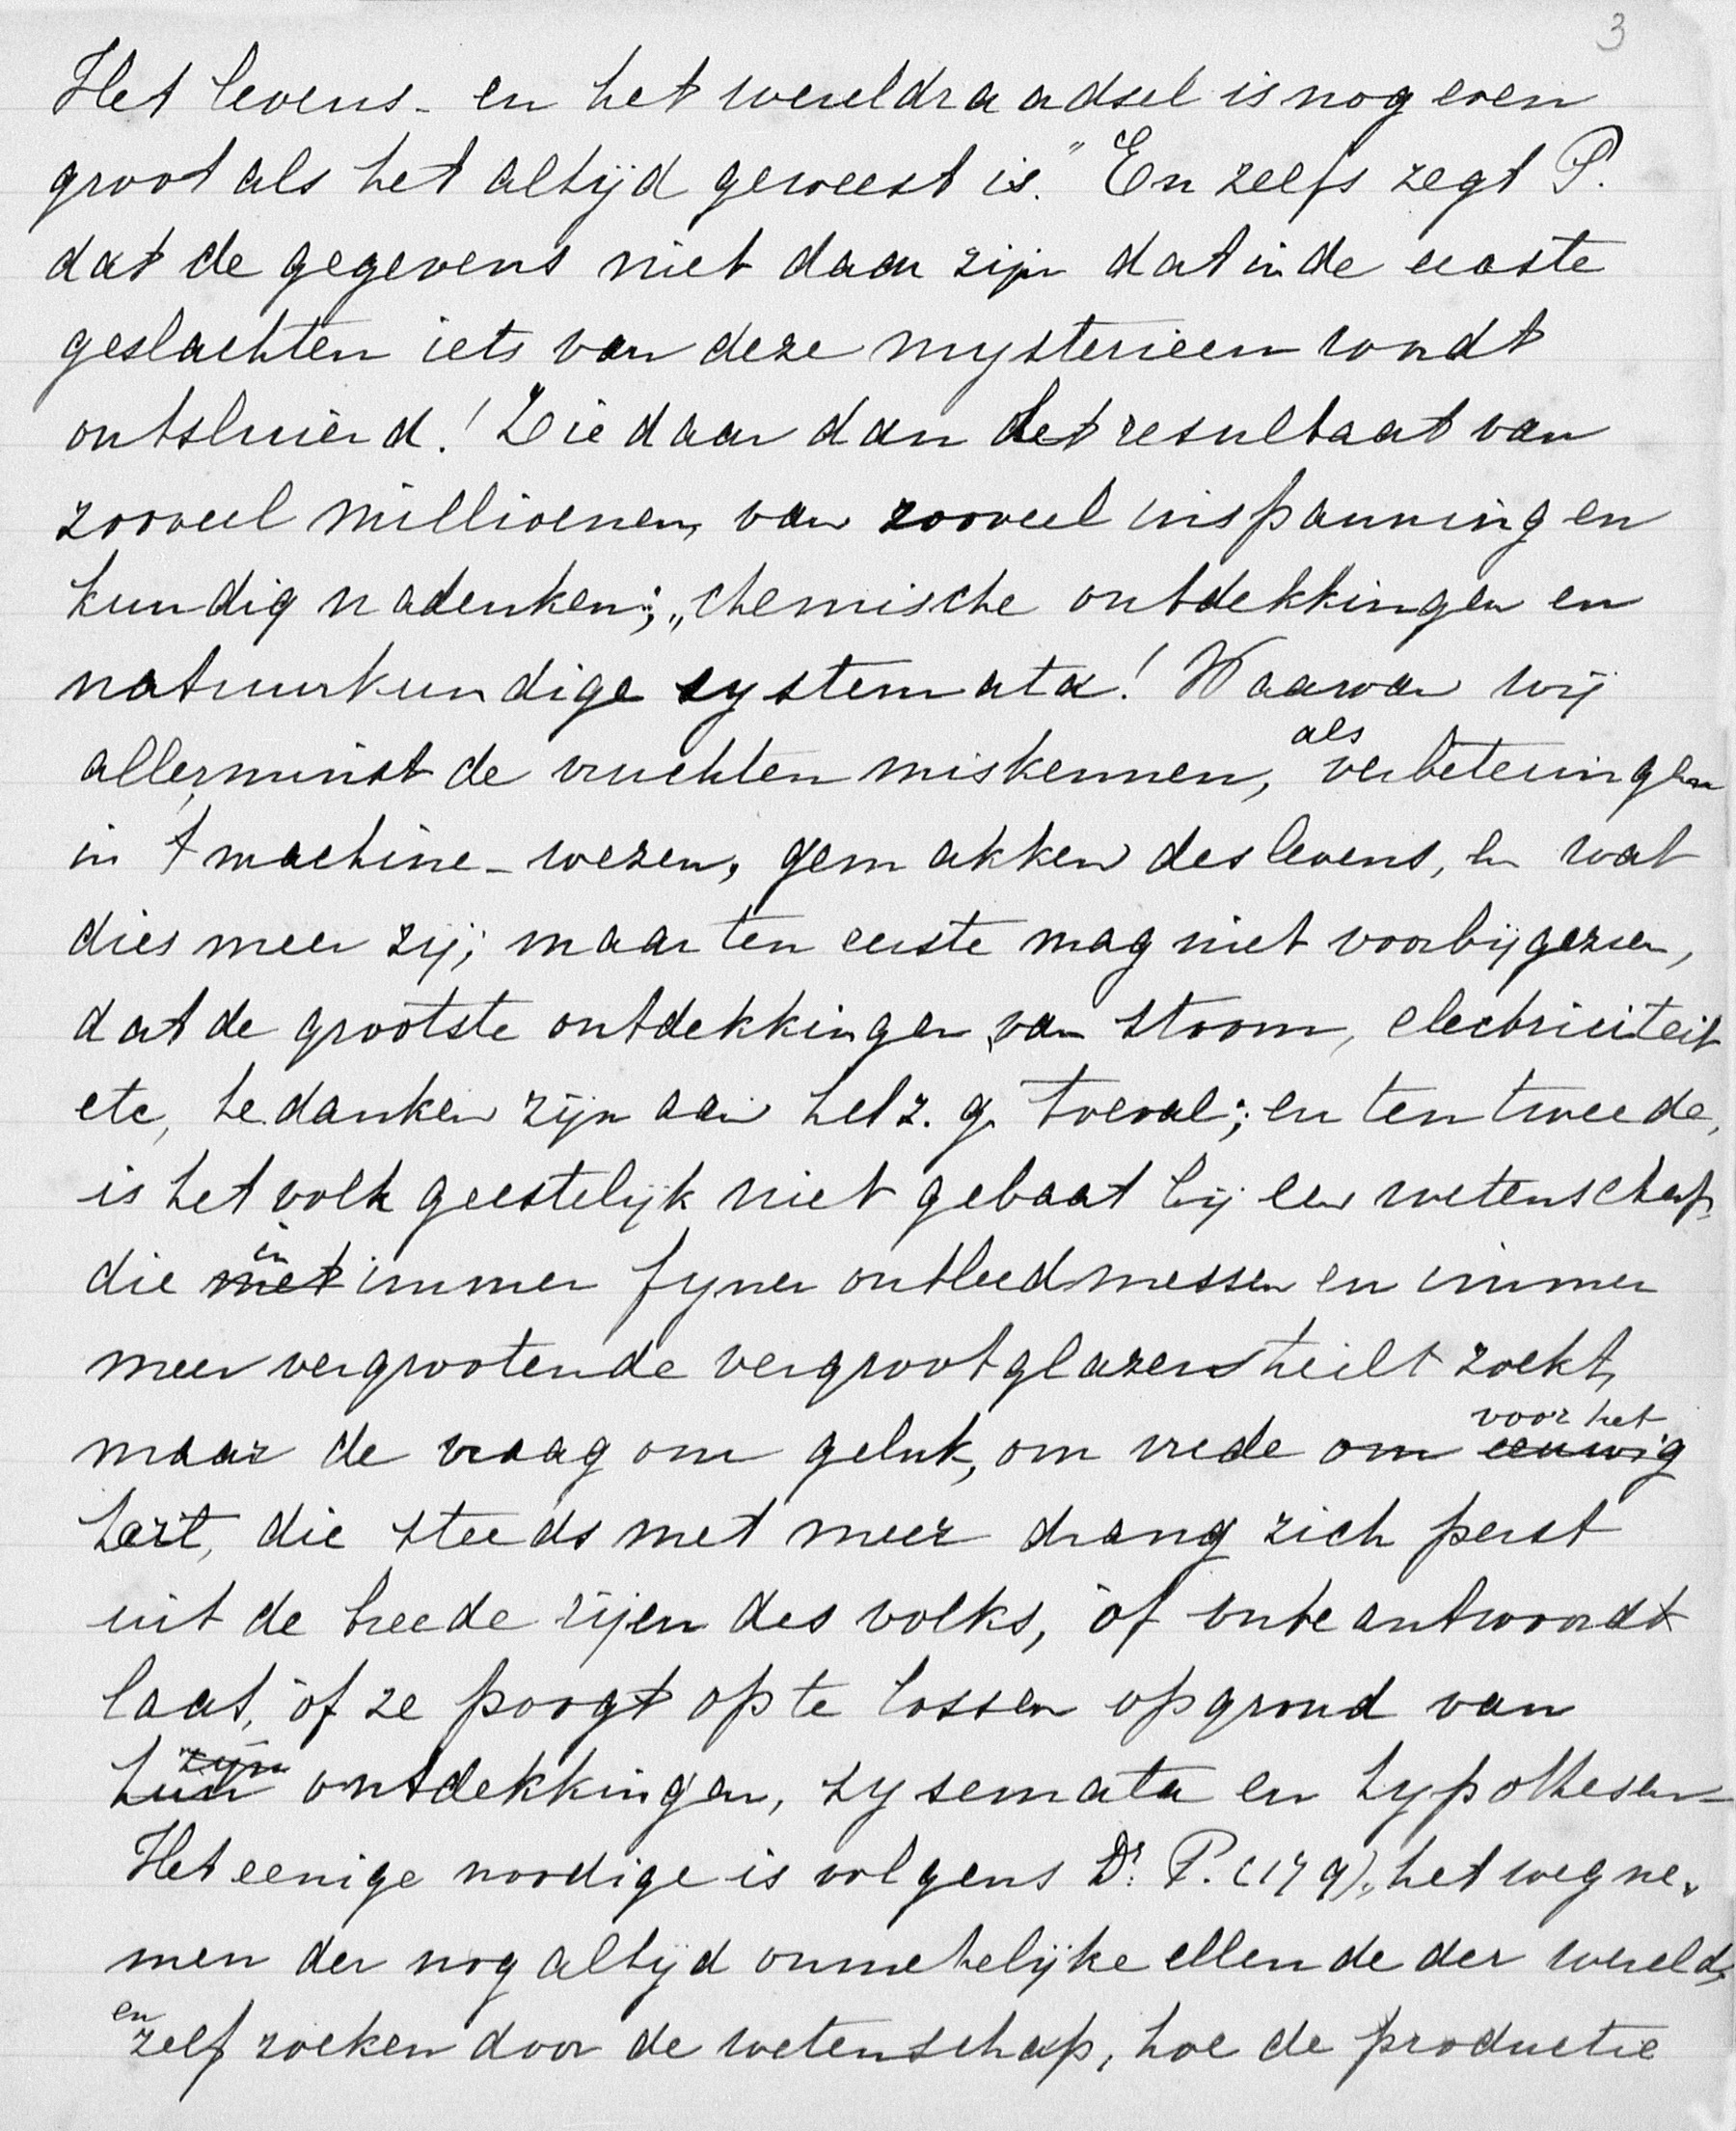 3
Het levens- en het wereldraadsel is nog even
groot als het altijd geweest is." En zelfs zegt P.
dat de gegevens niet daar zijn dat in de eerste
geslachten iets van deze mysterieen wordt
ontsluierd! Ziedaar dan het resultaat van
zooveel millioenen, van zooveel inspanning en
kundig nadenken; „chemische ontdekkingen en
natuurkundige systemata! Waarvan wij
allerminst de vruchten miskennen, als verbeteringen
in t machine-wezen, gemakken des levens, en wat
dies meer zij; maar ten eerste mag niet voorbijgezien,
dat de grootste ontdekkingen van stoom, electriciteit
etc, te danken zijn aan het z. g. toeval; en ten tweede,
is het volk geestelijk niet gebaat bij een wetenschap,
die met in immer fyner ontleedmessen en immer
meer vergrootende vergrootglazen heil zoekt,
maar de vraag om geluk, om vrede om eeuwig voor het
hart, die steeds met meer drang zich perst
uit de breede rijen des volks, òf onbeantwoordt
laat, òf ze poogt op te lossen op grond van
hun zijn ontdekkingen, sysemata en hypothesen
Het eenige noodige is volgens Dr. P. (179), het wegne-
men der nog altijd onmetelijke ellende der wereld,
en zelf zoeken door de wetenschap, hoe de productie